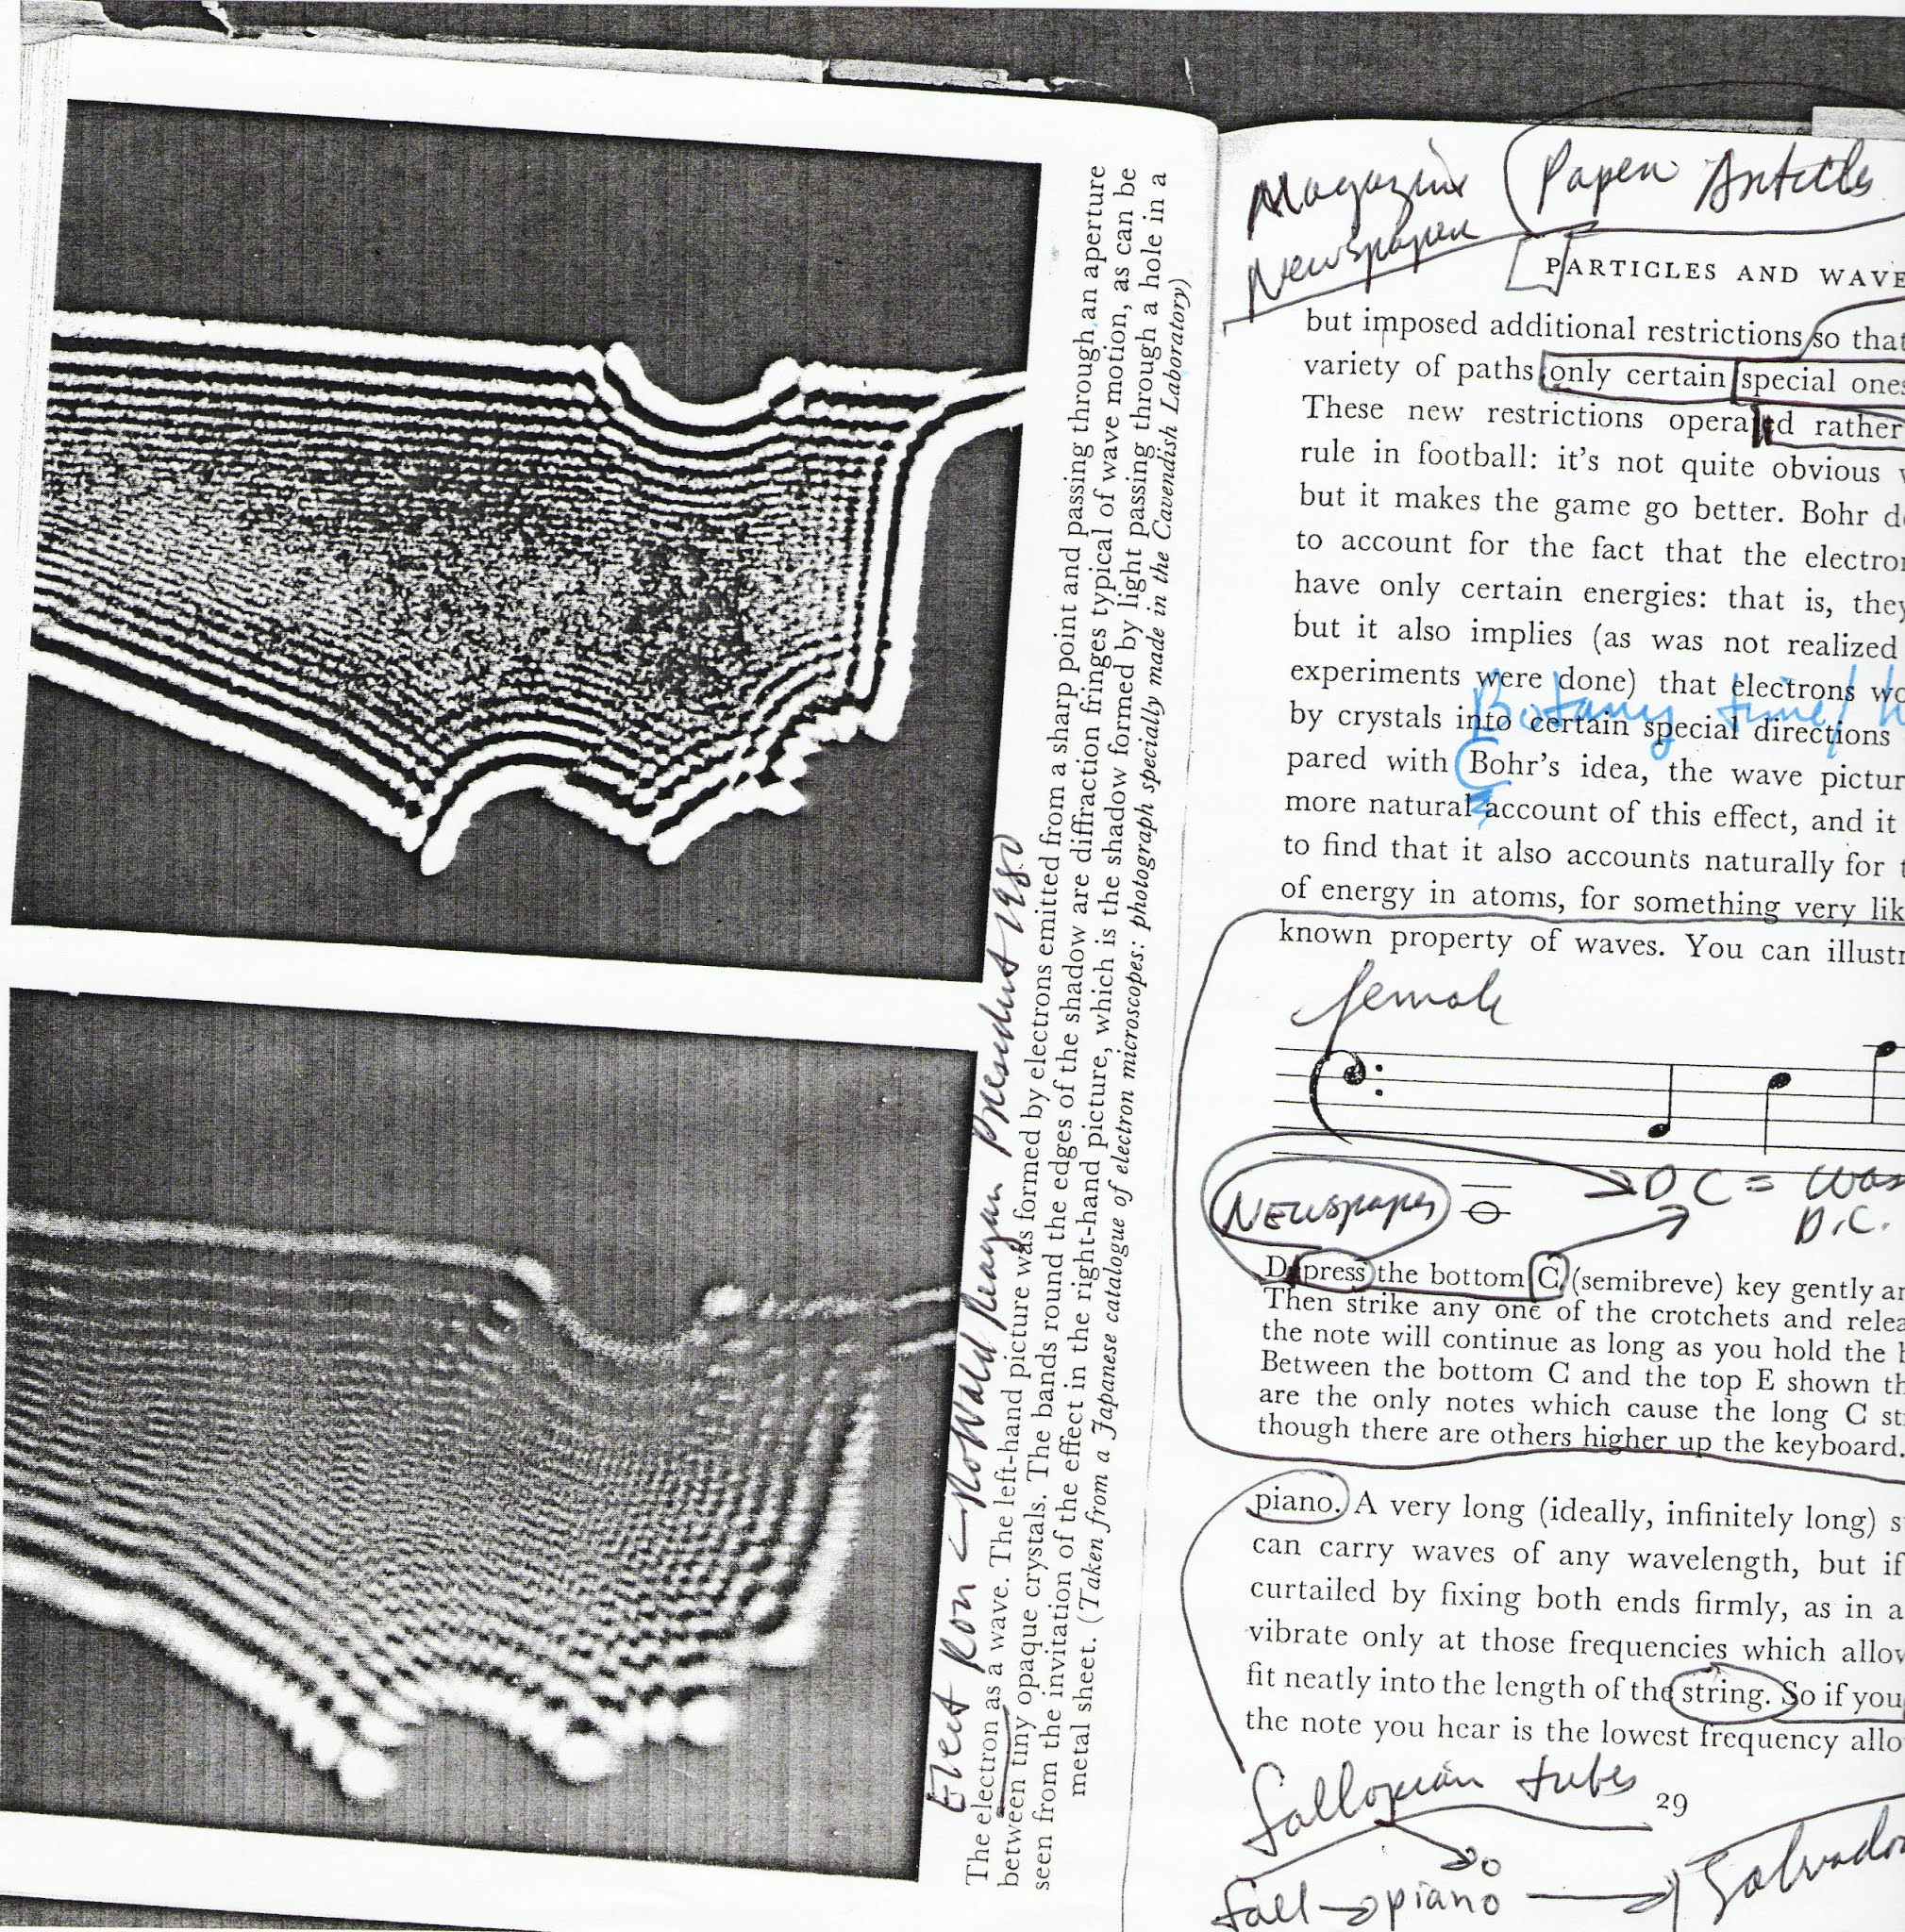 Elect Ron ← RoWald Reagan President 1980
The electron as a wave. The left-hand picture was formed by electrons emitted from a sharp point and passing through an aperture
between tiny opaque crystals. The bands round the edges of the shadow are diffraction fringes typical of wave motion, as can be
seen from the invitation of the effect in the right-hand picture, which is the shadow formed by light passing through a hole in a
metal sheet. (Taken from a Japanese catalogue of electron microscopes: photograph specially made in the Cavendish Laboratory)
Magazine Paper Articles
Newspaper
PARTICLES AND WAVE
but imposed additional restrictions so that
variety of paths only certain special ones
These new restrictions operated rather
rule in football: it's not quite obvious
but it makes the game go better. Bohr d
to account for the fact that the electron
have only certain energies: that is, they
but it also implies (as was not realized
experiments were done) that electrons wo
Botany time/
by crystals into certain special directions
pared with Bohr's idea, the wave pictur
more natural account of this effect, and it
to find that it also accounts naturally for t
of energy in atoms, for something very lik
known property of waves. You can illustr
female
NEWSpaper DC = Was
D.C.
Depress the bottom C (semibreve) key gently an
Then strike any one of the crotchets and relea
the note will continue as long as you hold the b
Between the bottom C and the top E shown th
are the only notes which cause the long C st
though there are others higher up the keyboard.
piano. A very long (ideally, infinitely long) s
can carry waves of any wavelength, but if
curtailed by fixing both ends firmly, as in a
vibrate only at those frequencies which allow
fit neatly into the length of the string. So if you
the note you hear is the lowest frequency allo
Fallopian tubes
29
fall → piano → Salvador